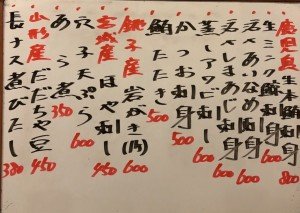 鹿児島産 生本鮪 800
生ミンク鯨刺身 600
活〆あいなめ刺身
活〆さしまあじ刺身
釜〆アワビ刺し
かつお刺身 500
鮪たたき 500
銚子産 岩がき(1乃) 600
宮城産 ほや刺し 450
穴子天ぷら 600
あら煮 350
山形産 だだちゃ豆 450
長ナス煮びたし 380